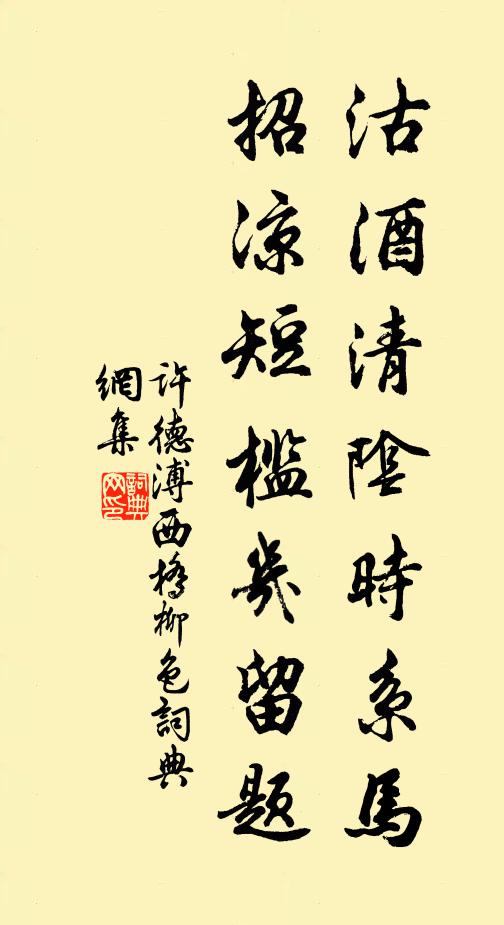 沽酒清陰時系馬
招凉短檻幾留題
許德溥西橋柳色詞典
網集
詞典網印